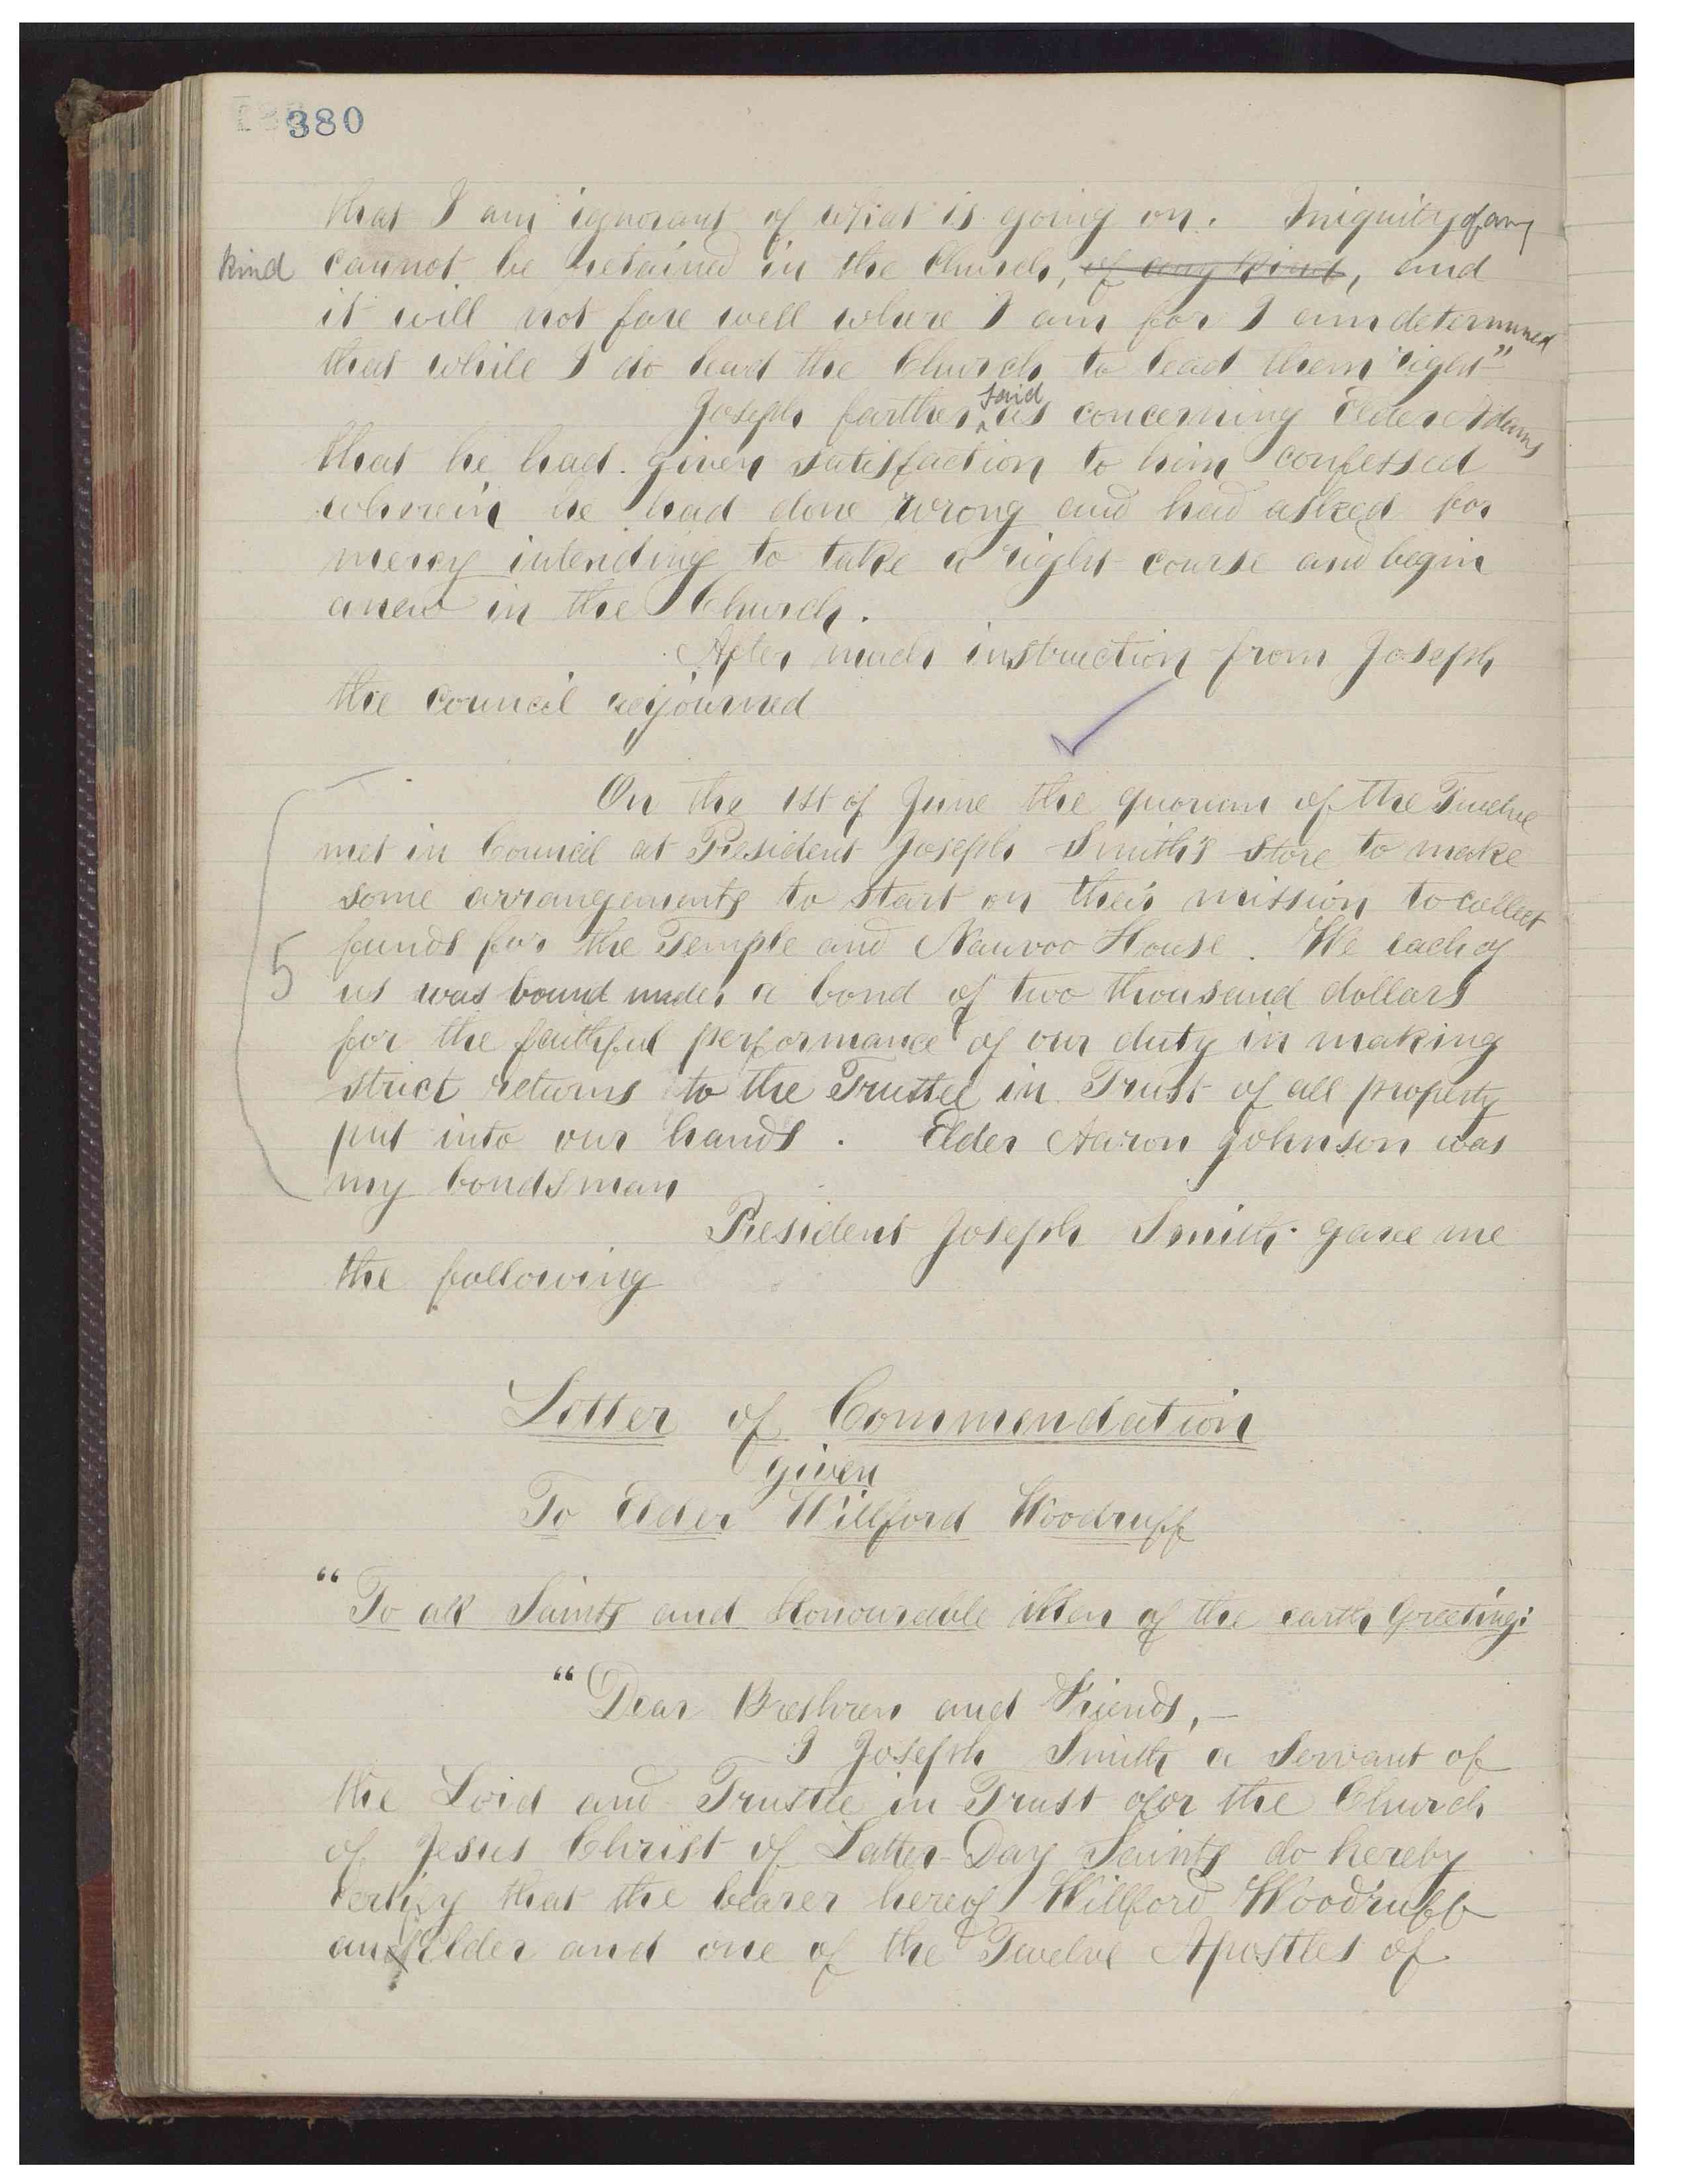 380
that I am ignorant of what is going on. Iniquity of any
kind cannot be retained in the Church, of any kind, and
it will not fare well where I am for I am determined
that while I do lead the Church to lead them right"
Joseph farther said as concerning Elder Adams
that he had given satisfaction to him confessed
wherein he had done wrong and had asked for
mercy intending to take a right course and begin
anew in the Church.
After much instruction from Joseph
the council adjourned
On the 1st of June the quorum of the Twelve
met in Council at President Joseph Smith's store to make
some arrangements to start on their mission to collect
5 funds for the Temple and Nauvoo House. We each of
us was bound under a bond of two thousand dollars
for the faithful performance of our duty in making
strict returns to the Trustee in Trust of all property
put into our hands. Elder Aaron Johnson was
my bondsman
President Joseph Smith gave me
the following
Letter of Commendation
given
To Elder Willford Woodruff
"To all Saints and Honourable Men of the earth Greeting:
"Dear Brethren and Friends,—
I Joseph Smith a Servant of
the Lord and Trustee in Trust for the Church
of Jesus Christ of Latter-Day Saints do hereby
certify that the bearer hereof Willford Woodruff
an Elder and one of the Twelve Apostles of